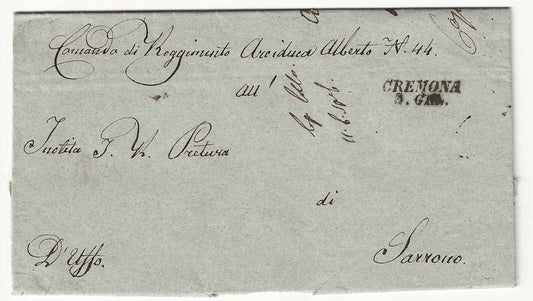 Comando di Reggimento Arciduca Alberto N. 44.
all'
CREMONA
Inclita I. R. Pretura
di
D'Uffo.
Sarrono.